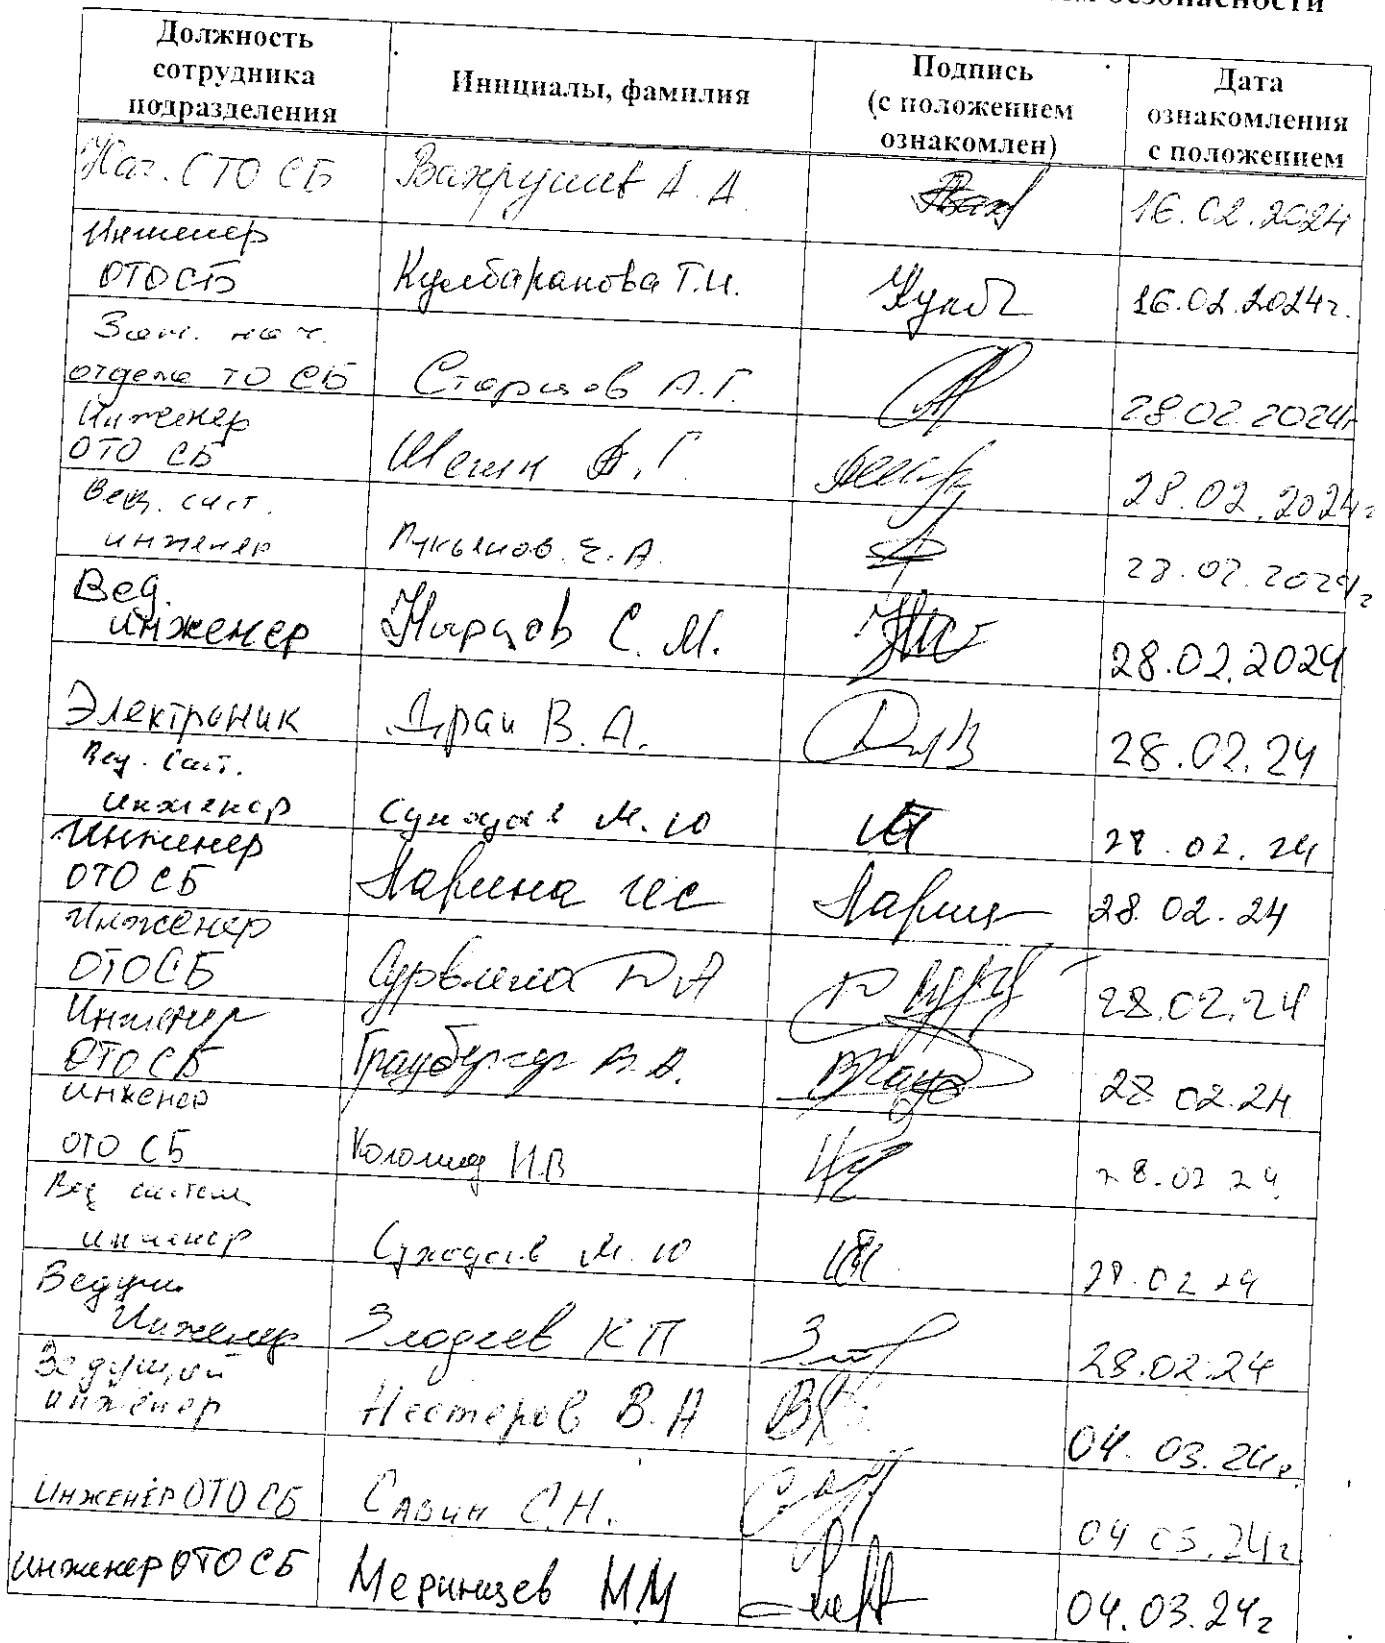 безопасности
Должность сотрудника подразделения
Инициалы, фамилия
Подпись (с положением ознакомлен)
Дата ознакомления с положением
Нач. СТО СБ Вахрушев А. А. 16.02.2024
Инженер
ОТО СБ Кулбаранова Т.И. 16.02.2024г.
Зам. нач.
отдела ТО СБ Старцев А.Г. 28.02.2024г
Инженер
ОТО СБ Шегин А.Г. 28.02.2024г
Вед. сист.
инженер Лукьянов Е.А. 28.02.2024г
Вед.
инженер С.М. 28.02.2024
Электроник В.А. 28.02.24
Вед. сист.
инженер М.Ю 28.02.24
Инженер
ОТО СБ Ларина ИС Ларин 28.02.24
Инженер
ОТО СБ Сурвилла Ю А 28.02.24
Инженер
ОТО СБ Граубергер В.А. 28.02.24
Инженер
ОТО СБ Коломиец Н.В 28.02.24
Вед систем
инженер Суходоев М.Ю 28.02.24
Ведущий
Инженер Злодеев К П 28.02.24
Ведущий
инженер Нестеров В.А 04.03.24г
Инженер ОТО СБ Савин С.Н. 04 03.24г
Инженер ОТО СБ Меринцев М М 04.03.24г